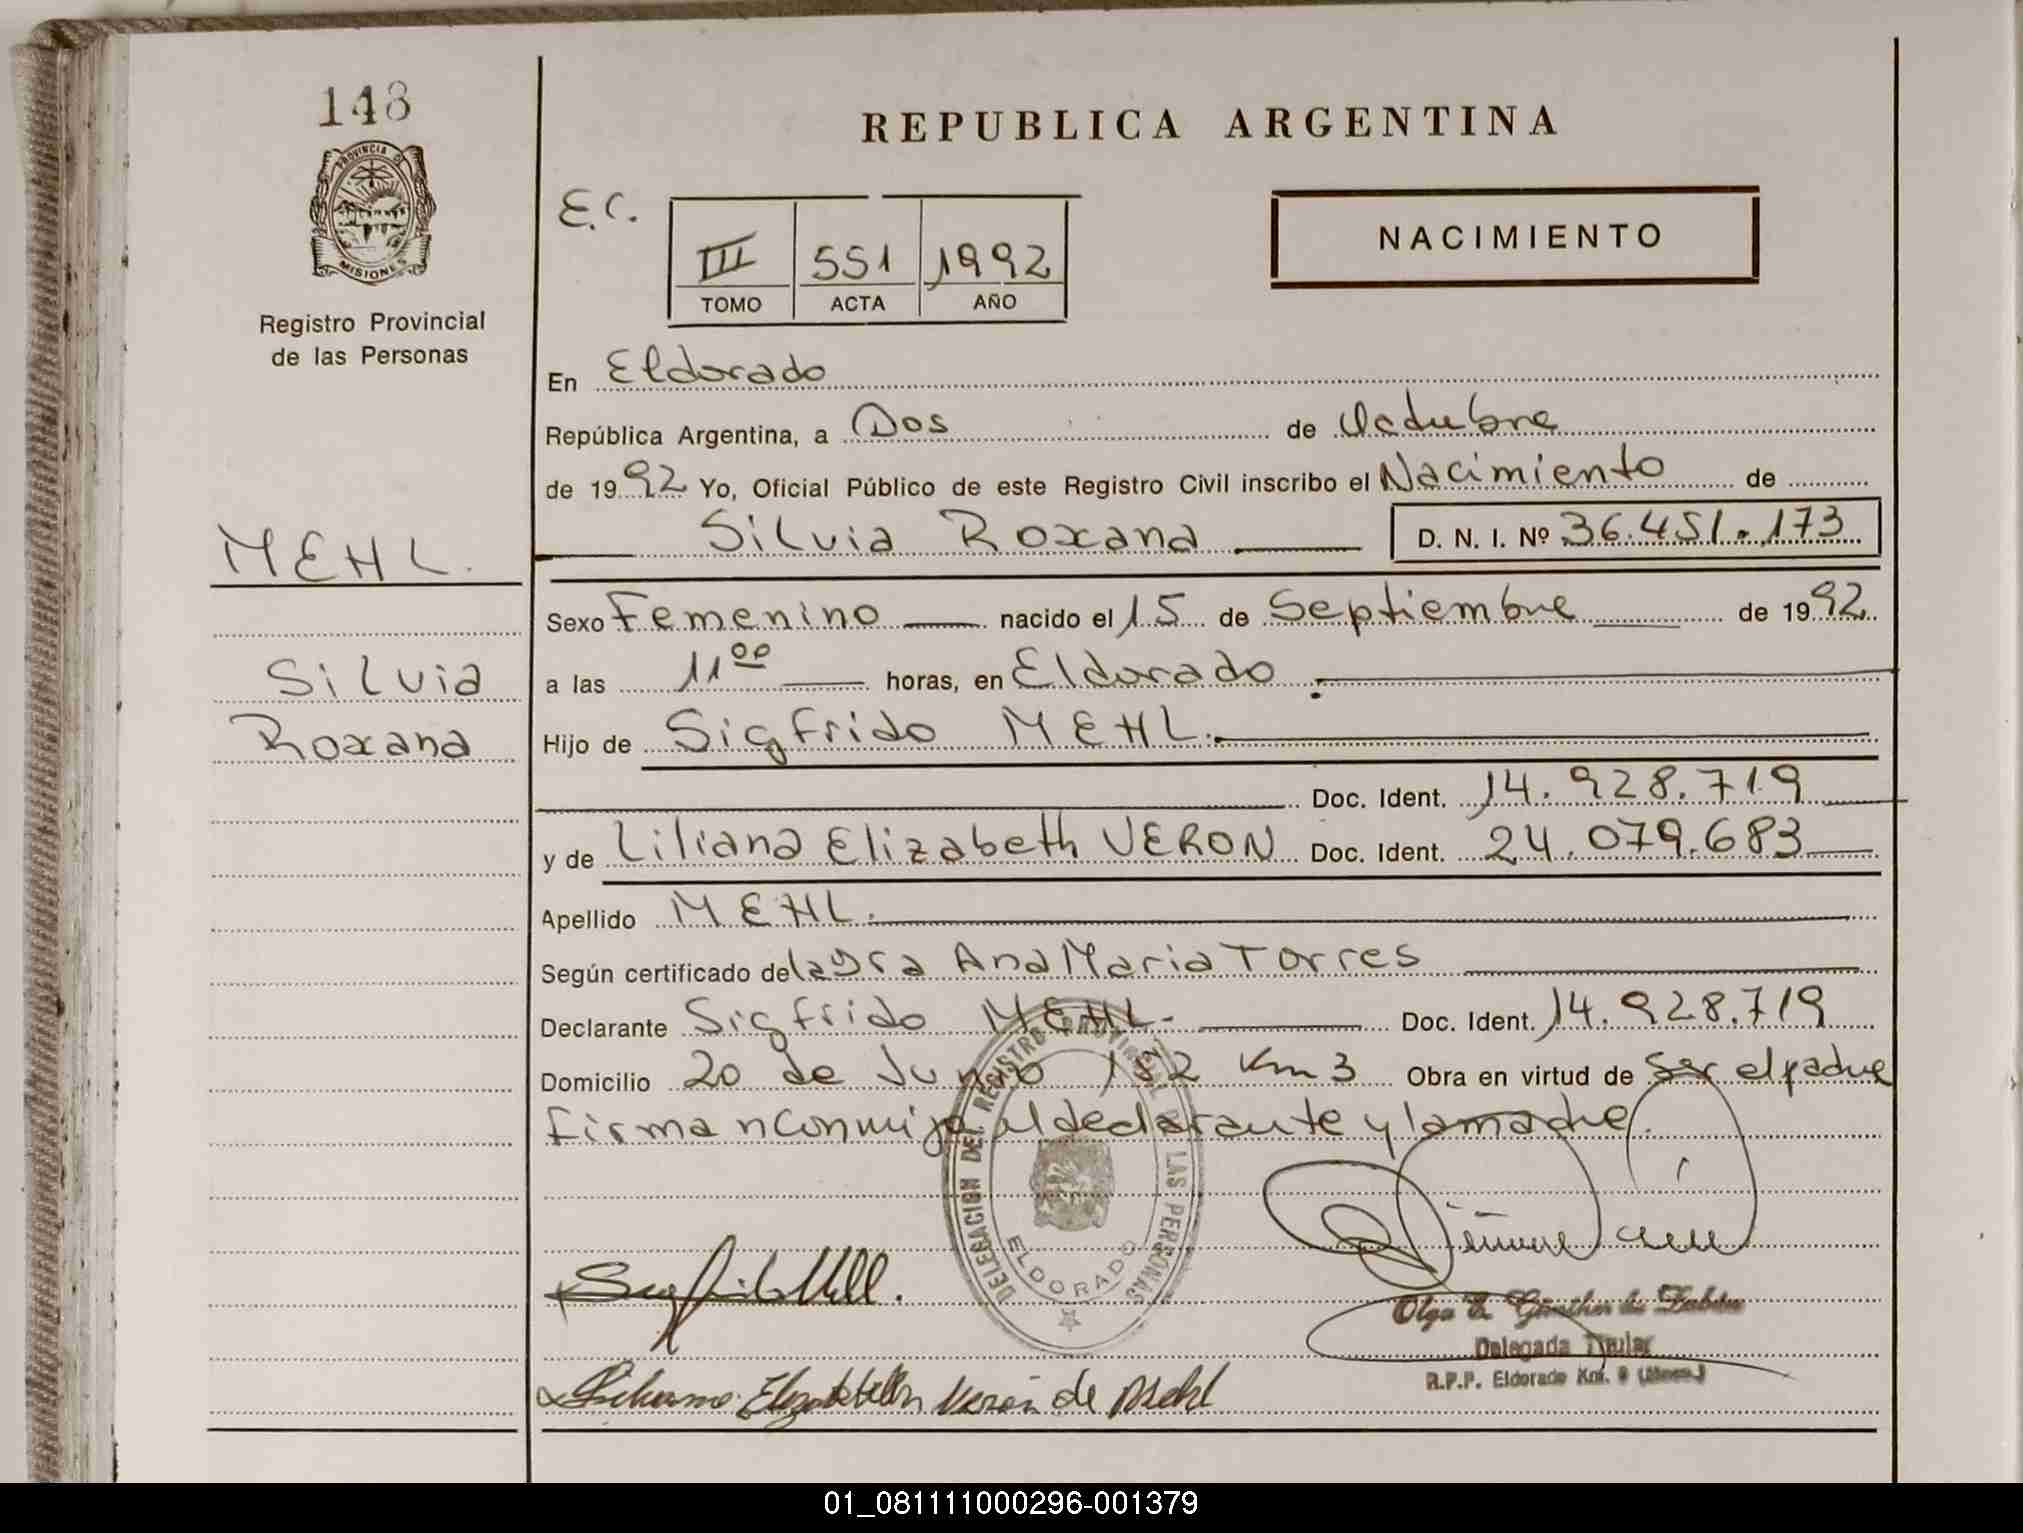 148
PROVINCIA DE
MISIONES
Registro Provincial
de las Personas
MEHL.
Silvia
Roxana
REPUBLICA ARGENTINA
E.C.
III 551 1992
TOMO ACTA AÑO
NACIMIENTO
En Eldorado
República Argentina, a Dos de Octubre
de 1992 Yo, Oficial Público de este Registro Civil inscribo el Nacimiento de
Silvia Roxana D. N. I. Nº 36.451.173
Sexo Femenino nacido el 15 de Septiembre de 1992.
a las 11 00 horas, en Eldorado
Hijo de Sigfrido MEHL.
Doc. Ident. 14.928.719
y de Liliana Elizabeth VERON Doc. Ident. 24.079.683
Apellido MEHL.
Según certificado de la Dra Ana Maria Torres
Declarante Sigfrido MEHL- Doc. Ident. 14.928.719
Domicilio 20 de Junio 182 Km 3 Obra en virtud de ser el padre
firman conmigo el declarante y la madre.
DELEGACION DEL REGISTRO PROVINCIAL DE LAS PERSONAS
ELDORADO
Olga E. Günther de
Delegada Titular
R.P.P. Eldorado Km. 9 (Mnes.)
Elizabeth Verón de Mehl
01_081111000296-001379